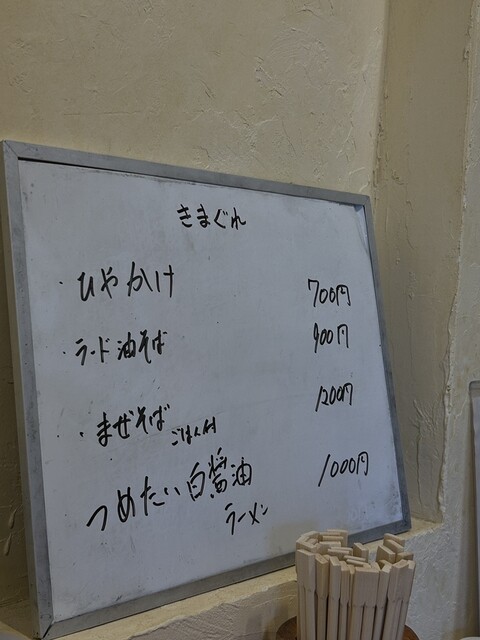 きまぐれ
・ひやかけ 700円
・ラード油そば 900円
・まぜそば ごはん付 1200円
つめたい白醤油 1000円
ラーメン